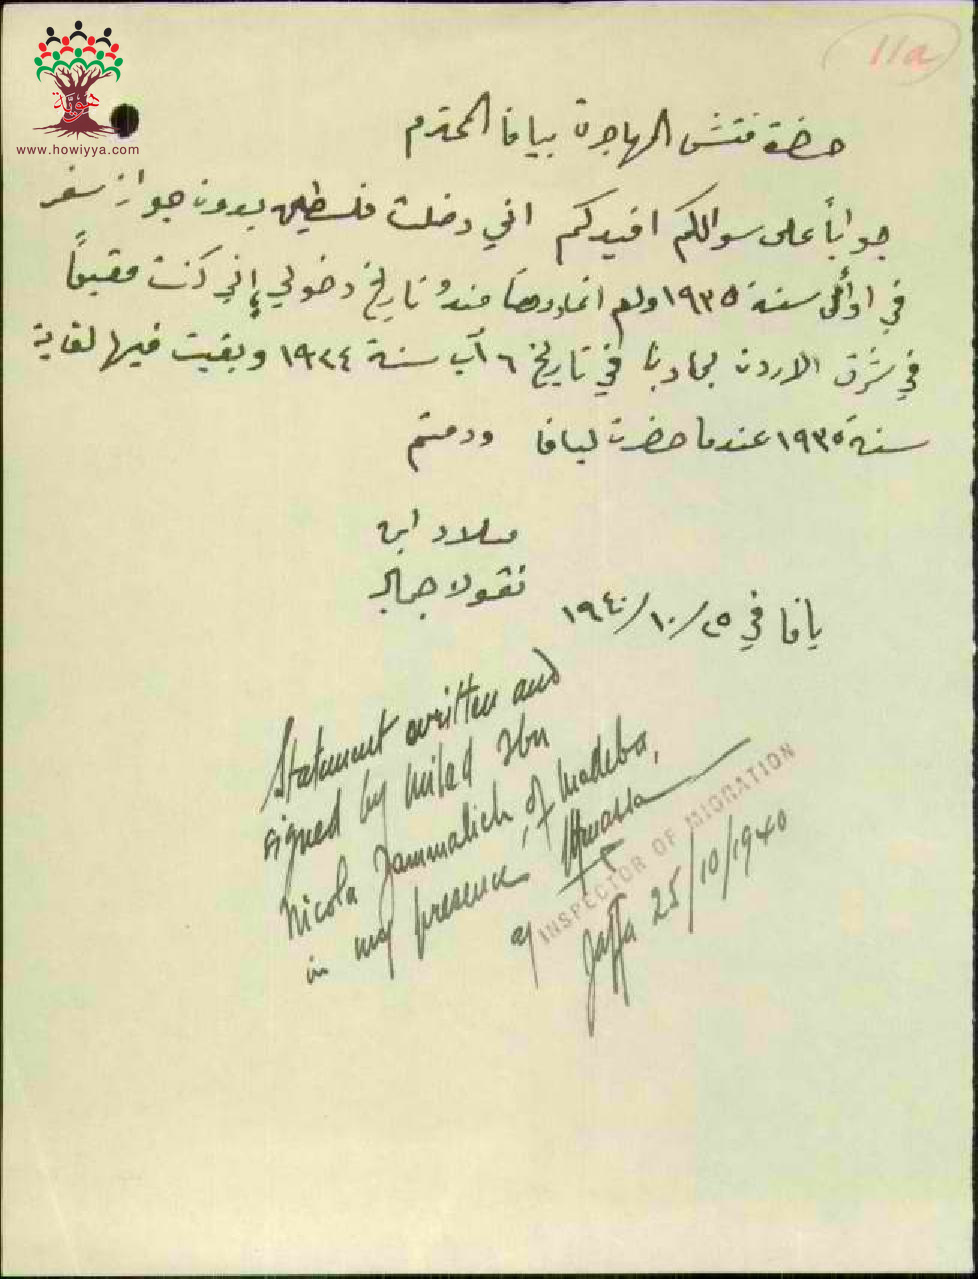 11a
هوية
www.howiyya.com
حضرة مفتش المهاجرة بيافا المحترم
جواباً على سوالكم افيدكم اني دخلت فلسطين بدون جواز سفر
في اوائل سنة ١٩٣٥ ولم اغادرها منذ تاريخ دخولي إني كنت مقيماً
في شرق الاردن بمادبا في تاريخ ٦ آب سنة ١٩٢٤ وبقيت فيها لغاية
سنة ١٩٣٥ عندما حضرت ليافا ودمتم
ميلاد ابن
نقولا
يافا في ٢٥/١٠/١٩٤٠
Statement written and
signed by Milad Ibn
Nicola Jammalieh, of Madeba,
in my presence
INSPECTOR OF MIGRATION
Jaffa 25/10/1940